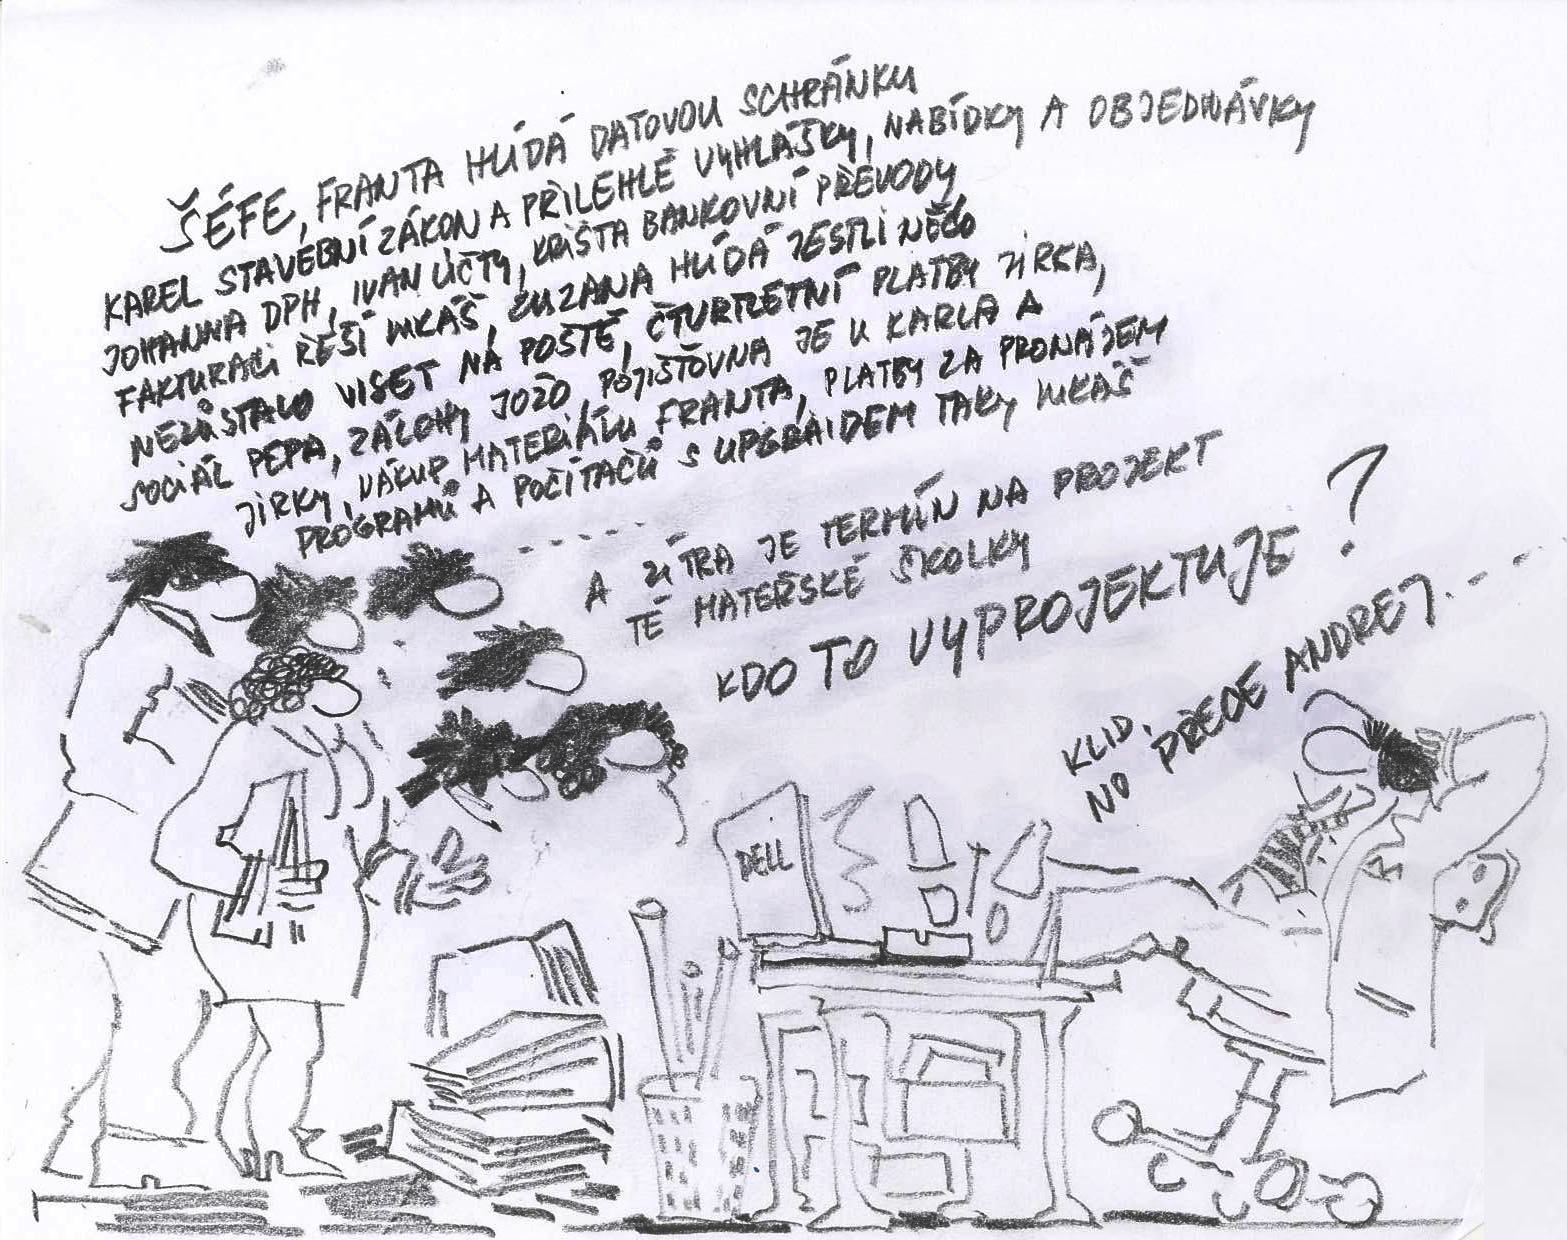 ŠÉFE, FRANTA HLÍDÁ DATOVOU SCHRÁNKU
KAREL STAVEBNÍ ZÁKON A PŘILEHLÉ VYHLÁŠKY, NABÍDKY A OBJEDNÁVKY
JOHANNA DPH, IVAN ÚČTY, KRIŠTA BANKOVNÍ PŘEVODY
FAKTURACI ŘEŠÍ LUKÁŠ, ZUZANA HLÍDÁ JESTLI NĚCO
NEZŮSTALO VISET NA POŠTĚ, ČTVRTLETNÍ PLATBY JIRKA,
SOCIÁL PEPA, ZÁLOHY JOŽO, POJIŠŤOVNA JE U KARLA A
JIRKY, NÁKUP MATERIÁLU FRANTA, PLATBY ZA PRONÁJEM
PROGRAMŮ A POČÍTAČŮ S UPGRAIDEM TAKY LUKÁŠ
- - - - - - -
A ZÍTRA JE TERMÍN NA PROJEKT
TÉ MATEŘSKÉ ŠKOLKY
KDO TO VYPROJEKTUJE ?
KLID,
NO PŘEDE ANDREJ . - - -
DELL